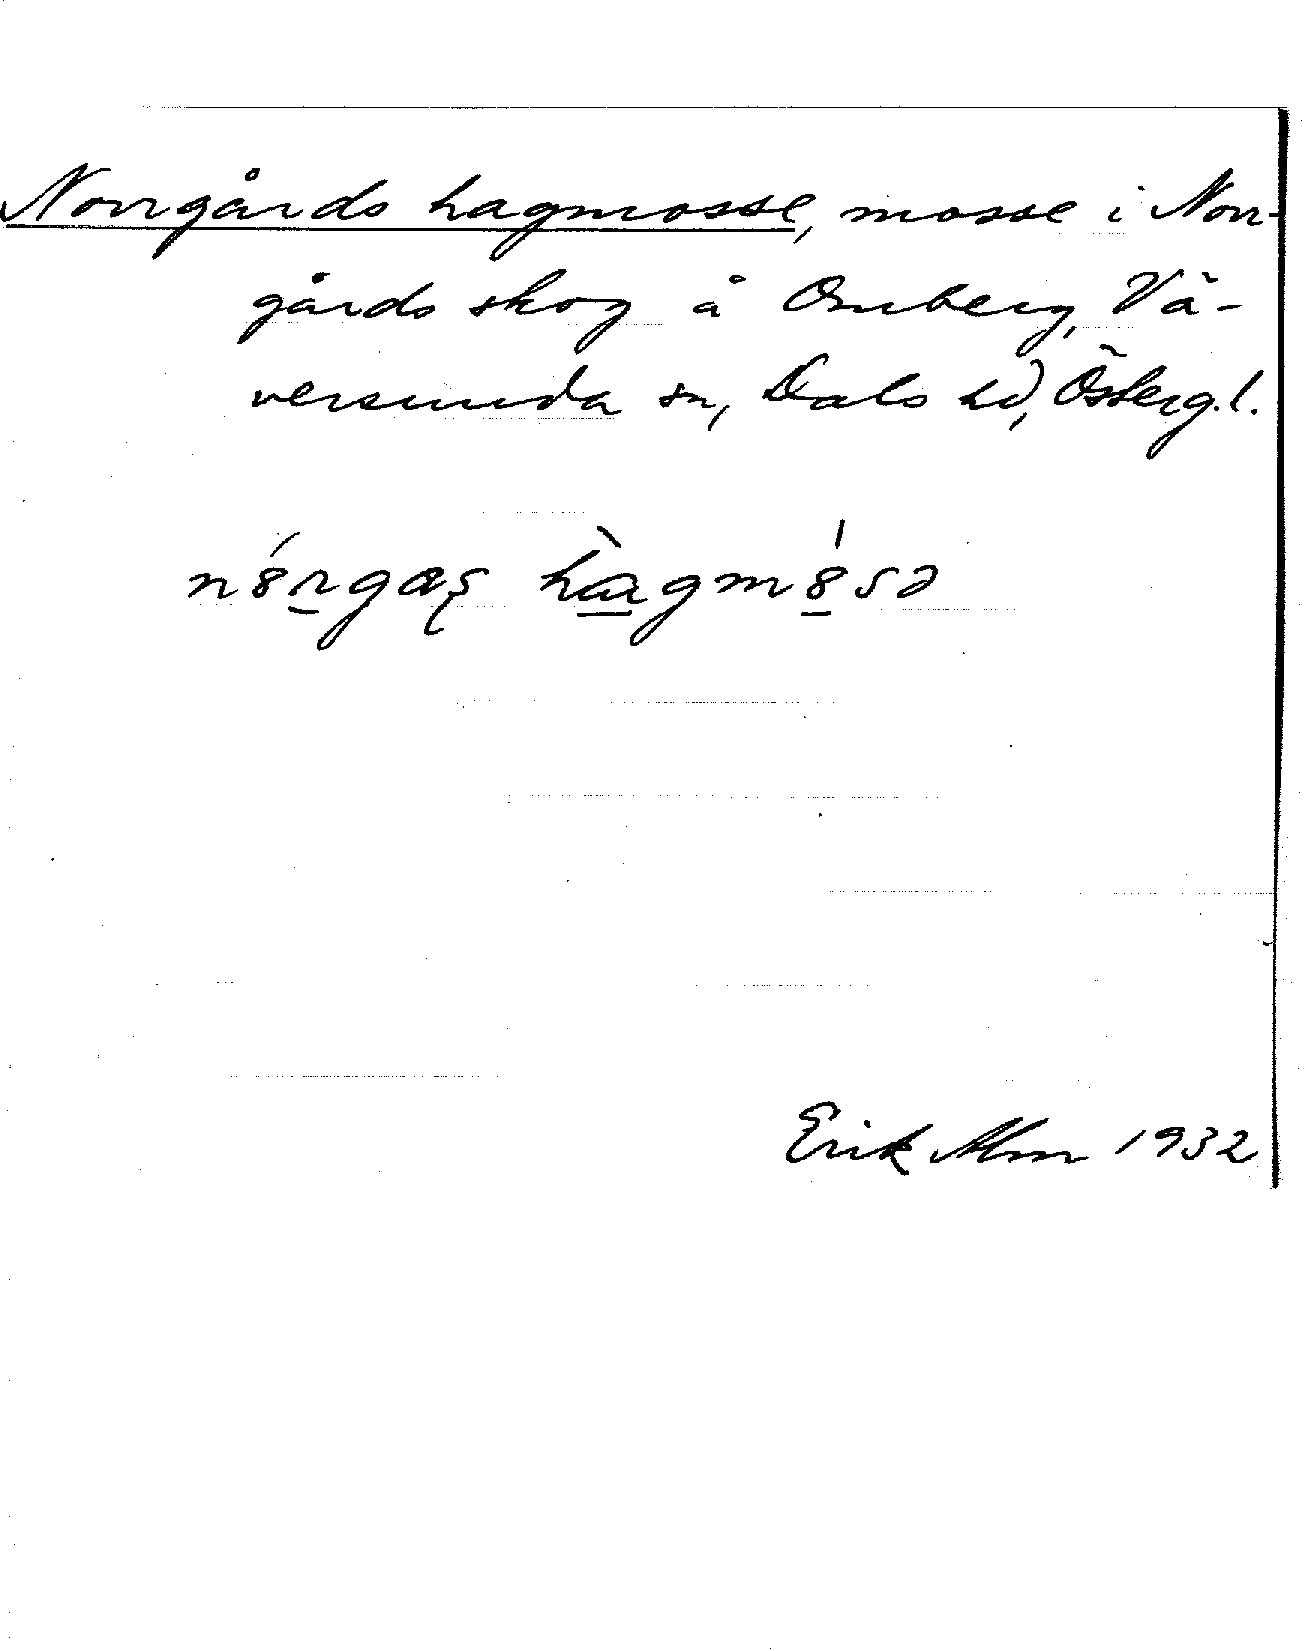 Norrgårds hagmosse, mosse i Norr-
gårds skog å Omberg, Vä-
versunda sn, Dals hd, Österg.l.
n8́rgaş hàgm8́sə
Erik Alm 1932